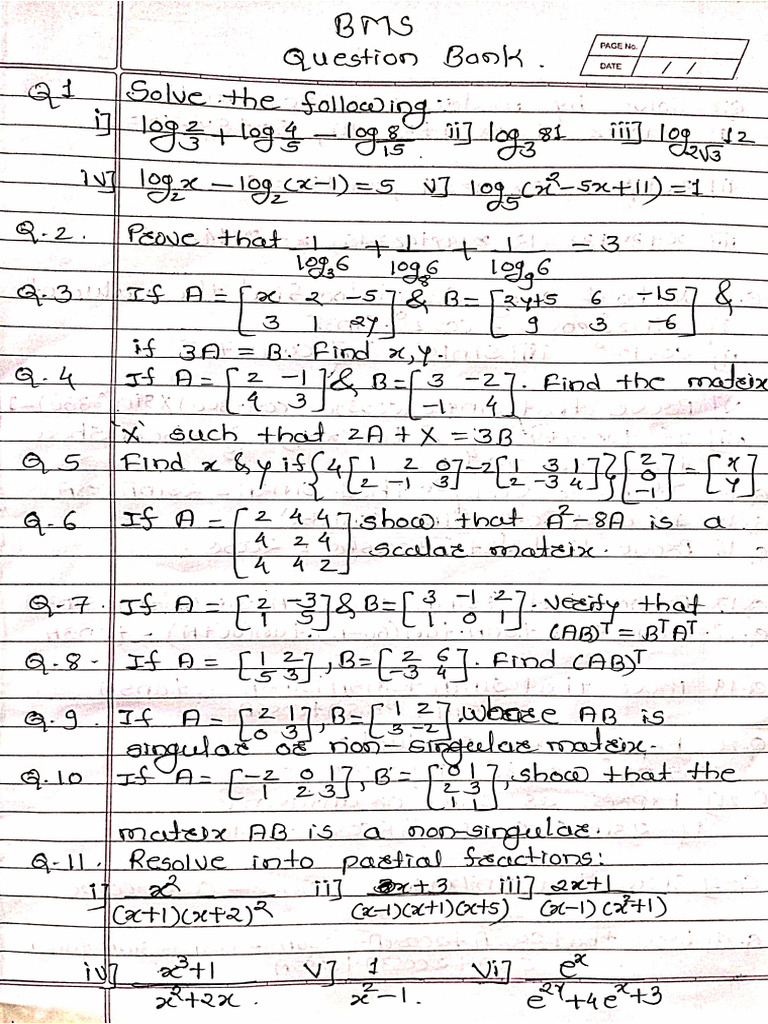 BMS
Question Bank.
PAGE No.
DATE / /
Q1 Solve the following:
i] log 2/3 + log 4/5 - log 8/15. ii] log₃ 81 iii] log_{2√3} 12
iv] log₂x - log₂(x-1) = 5 v] log₅(x²-5x+11) = 1.
Q.2. Prove that 1/log₃6 + 1/log₈6 + 1/log₉6 = 3
Q.3 If A = [x 2 -5; 3 1 2y] & B = [2y+5 6 -15; 9 3 -6] &
if 3A = B. Find x, y.
Q.4 If A = [2 -1; 4 3] & B = [3 -2; -1 4]. Find the matrix
'X' such that 2A + X = 3B
Q.5 Find x & y if {4[1 2 0; 2 -1 3] - 2[1 3 1; 2 -3 4]}[2; 0; -1] = [x; y]
Q.6 If A = [2 4 4; 4 2 4; 4 4 2] show that A² - 8A is a
scalar matrix.
Q.7. If A = [2 -3; 1 5] & B = [3 -1 2; 1 0 1]. Verify that
(AB)ᵀ = BᵀAᵀ.
Q.8- If A = [1 2; 5 3], B = [2 6; -3 4]. Find (AB)ᵀ
Q.9. If A = [2 1; 0 3], B = [1 2; 3 -2] AB is
singular or non-singular matrix.
Q.10 If A = [-2 0 1; 1 2 3], B = [0 1; 2 3; 1 1], show that the
matrix AB is a non-singular.
Q-11. Resolve into partial fractions:
i] x²/(x+1)(x+2)² ii] x+3/(x-1)(x+1)(x+5) iii] 2x+1/(x-1)(x²+1)
iv] x³+1/x²+2x. v] 1/x²-1. vi] eˣ/e²ˣ+4eˣ+3